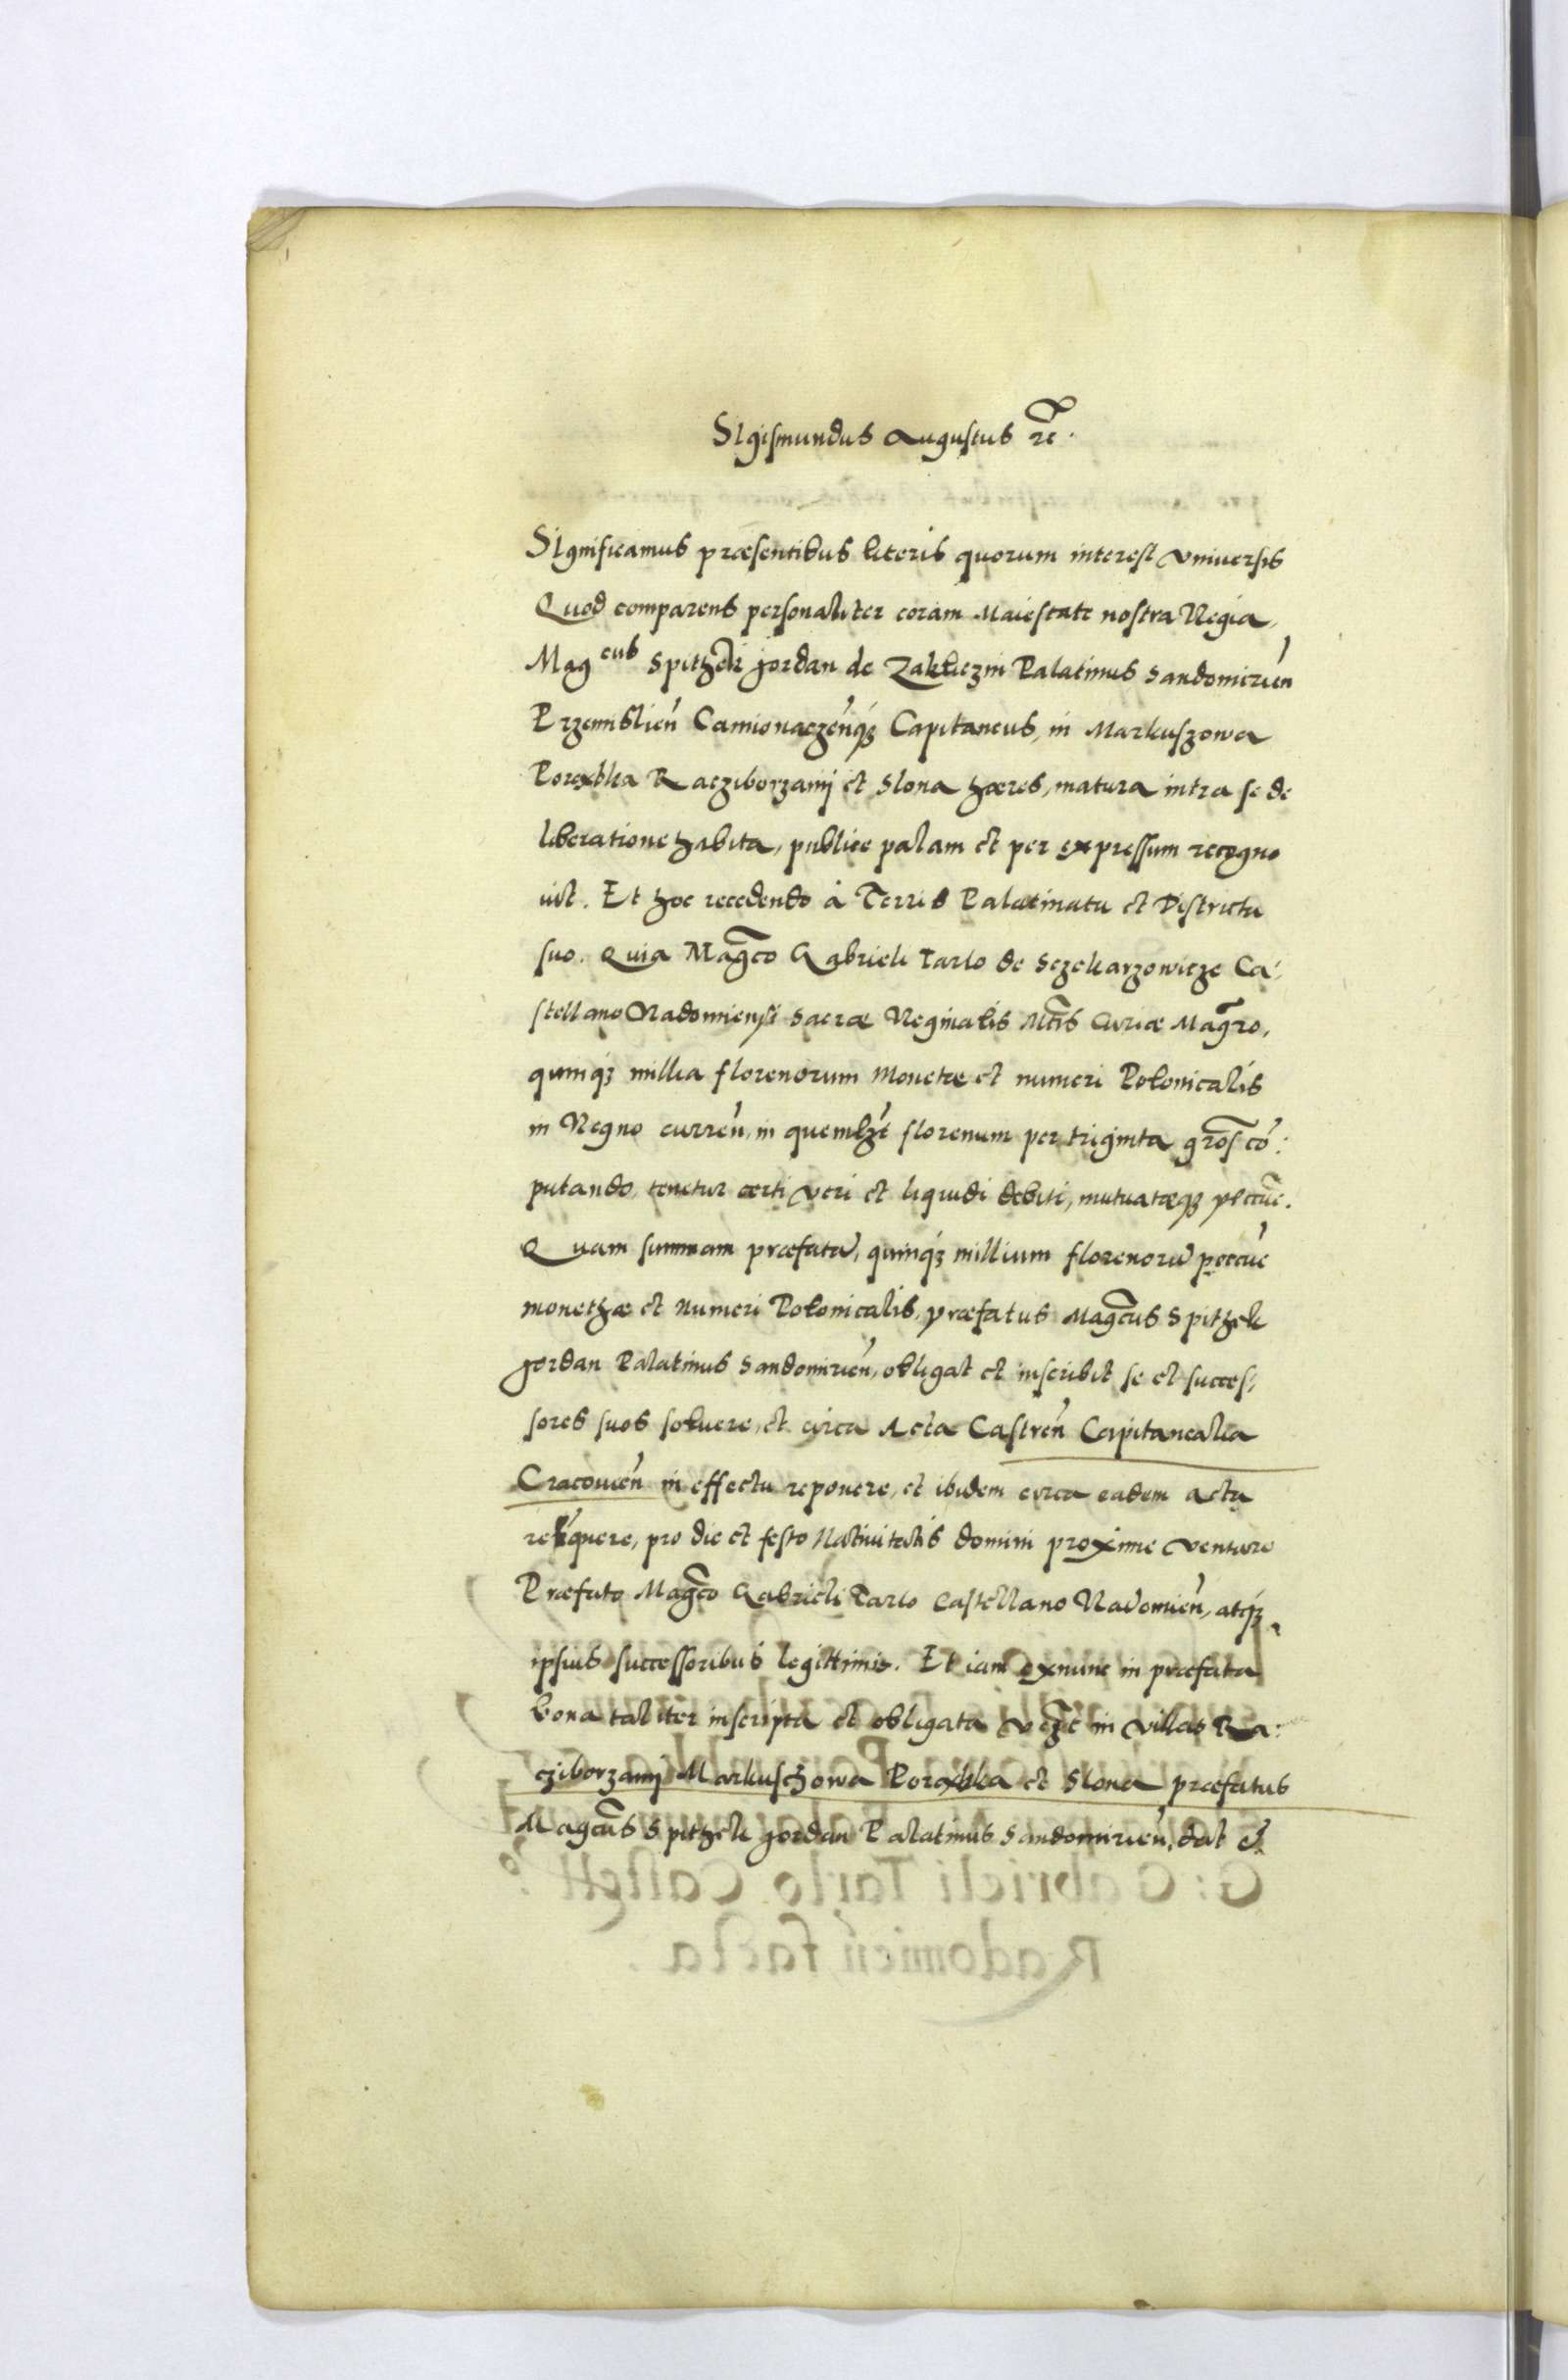 Sigismundus Augustus rc̃.
Significamus præsentibus literis quorum interest vniuersis
Quod comparens personaliter coram Maiestate nostra Regia,
Mag^cus Spithek Jordan de Zakliczin Palatinus Sandomirień
Przemislień Camionaczeńq; Capitaneus, in Markuszowa
Porąbka Racziborzanij et Slona hæres, matura intra se de
liberatione habita, publice palam et per expressum recogno
uit. Et hoc recedendo à Terris Palatinatu et Districtu
suo. Quia Mag̃co Gabrieli Tarlo de Sczekarzowicze Ca:
stellano Radomiensi Sacræ Reginalis Mt̃is Curiæ Mag̃ro,
quinq; millia florenorum Monetæ et numeri Polonicalis
in Regno curreń, in quemlẓt florenum per triginta gros̃ cō:
putando, tenetur certi veri et liquidi debiti, mutuatæq; pecūe.
Quam summam præfatā, quinq; millium florenorū pecūe
monethæ et numeri Polonicalis, præfatus Mag̃cus Spithek
Jordan Palatinus Sandomirień, obligat et inscribit se et succes,
sores suos soluere, et circa Acta Castreń Capitanealia
Cracouień in effectu reponere, et ibidem circa eadem acta
relíquere, pro die et festo Natiuitatis domini proxime venturo
Præfato Mag̃co Gabrieli Tarlo Castellano Radomień, atq;
ipsius successoribus legittimis. Et iam exnunc in præfata
bona taliter inscripta et obligata vẓt in villas Ra:
cziborzanij Markuschowa Porąbka et Slona præfatus
Mag̃cus Spithek Jordan Palatinus Sandomirień, dat &